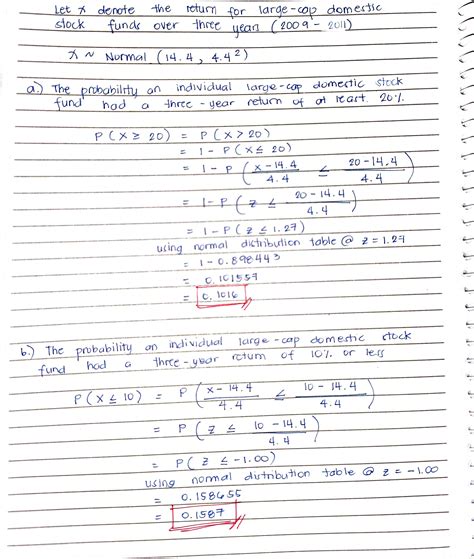 Let x denote the return for large-cap domestic
stock funds over three years (2009 - 2011)
X ~ Normal (14.4, 4.4²)
a.) The probability an individual large-cap domestic stock
fund had a three-year return of at least 20%.
P(X ≥ 20) = P(X > 20)
= 1 - P(X ≤ 20)
= 1 - P((X - 14.4)/4.4 ≤ (20 - 14.4)/4.4)
= 1 - P(Z ≤ (20 - 14.4)/4.4)
= 1 - P(Z ≤ 1.27)
using normal distribution table @ Z = 1.27
= 1 - 0.898443
= 0.101557
= 0.1016
b.) The probability an individual large-cap domestic stock
fund had a three-year return of 10% or less
P(X ≤ 10) = P((X - 14.4)/4.4 ≤ (10 - 14.4)/4.4)
= P(Z ≤ (10 - 14.4)/4.4)
= P(Z ≤ -1.00)
using normal distribution table @ Z = -1.00
= 0.158655
= 0.1587